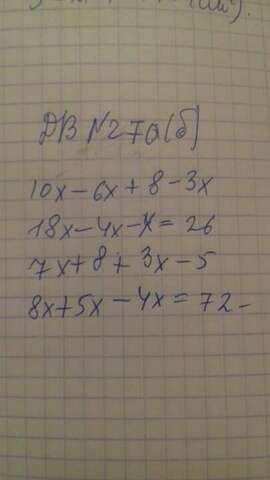 ДВ №27а(б)
10x - 6x + 8 - 3x
18x - 4x - x = 26
7x + 8 + 3x - 5
8x + 5x - 4x = 72 -